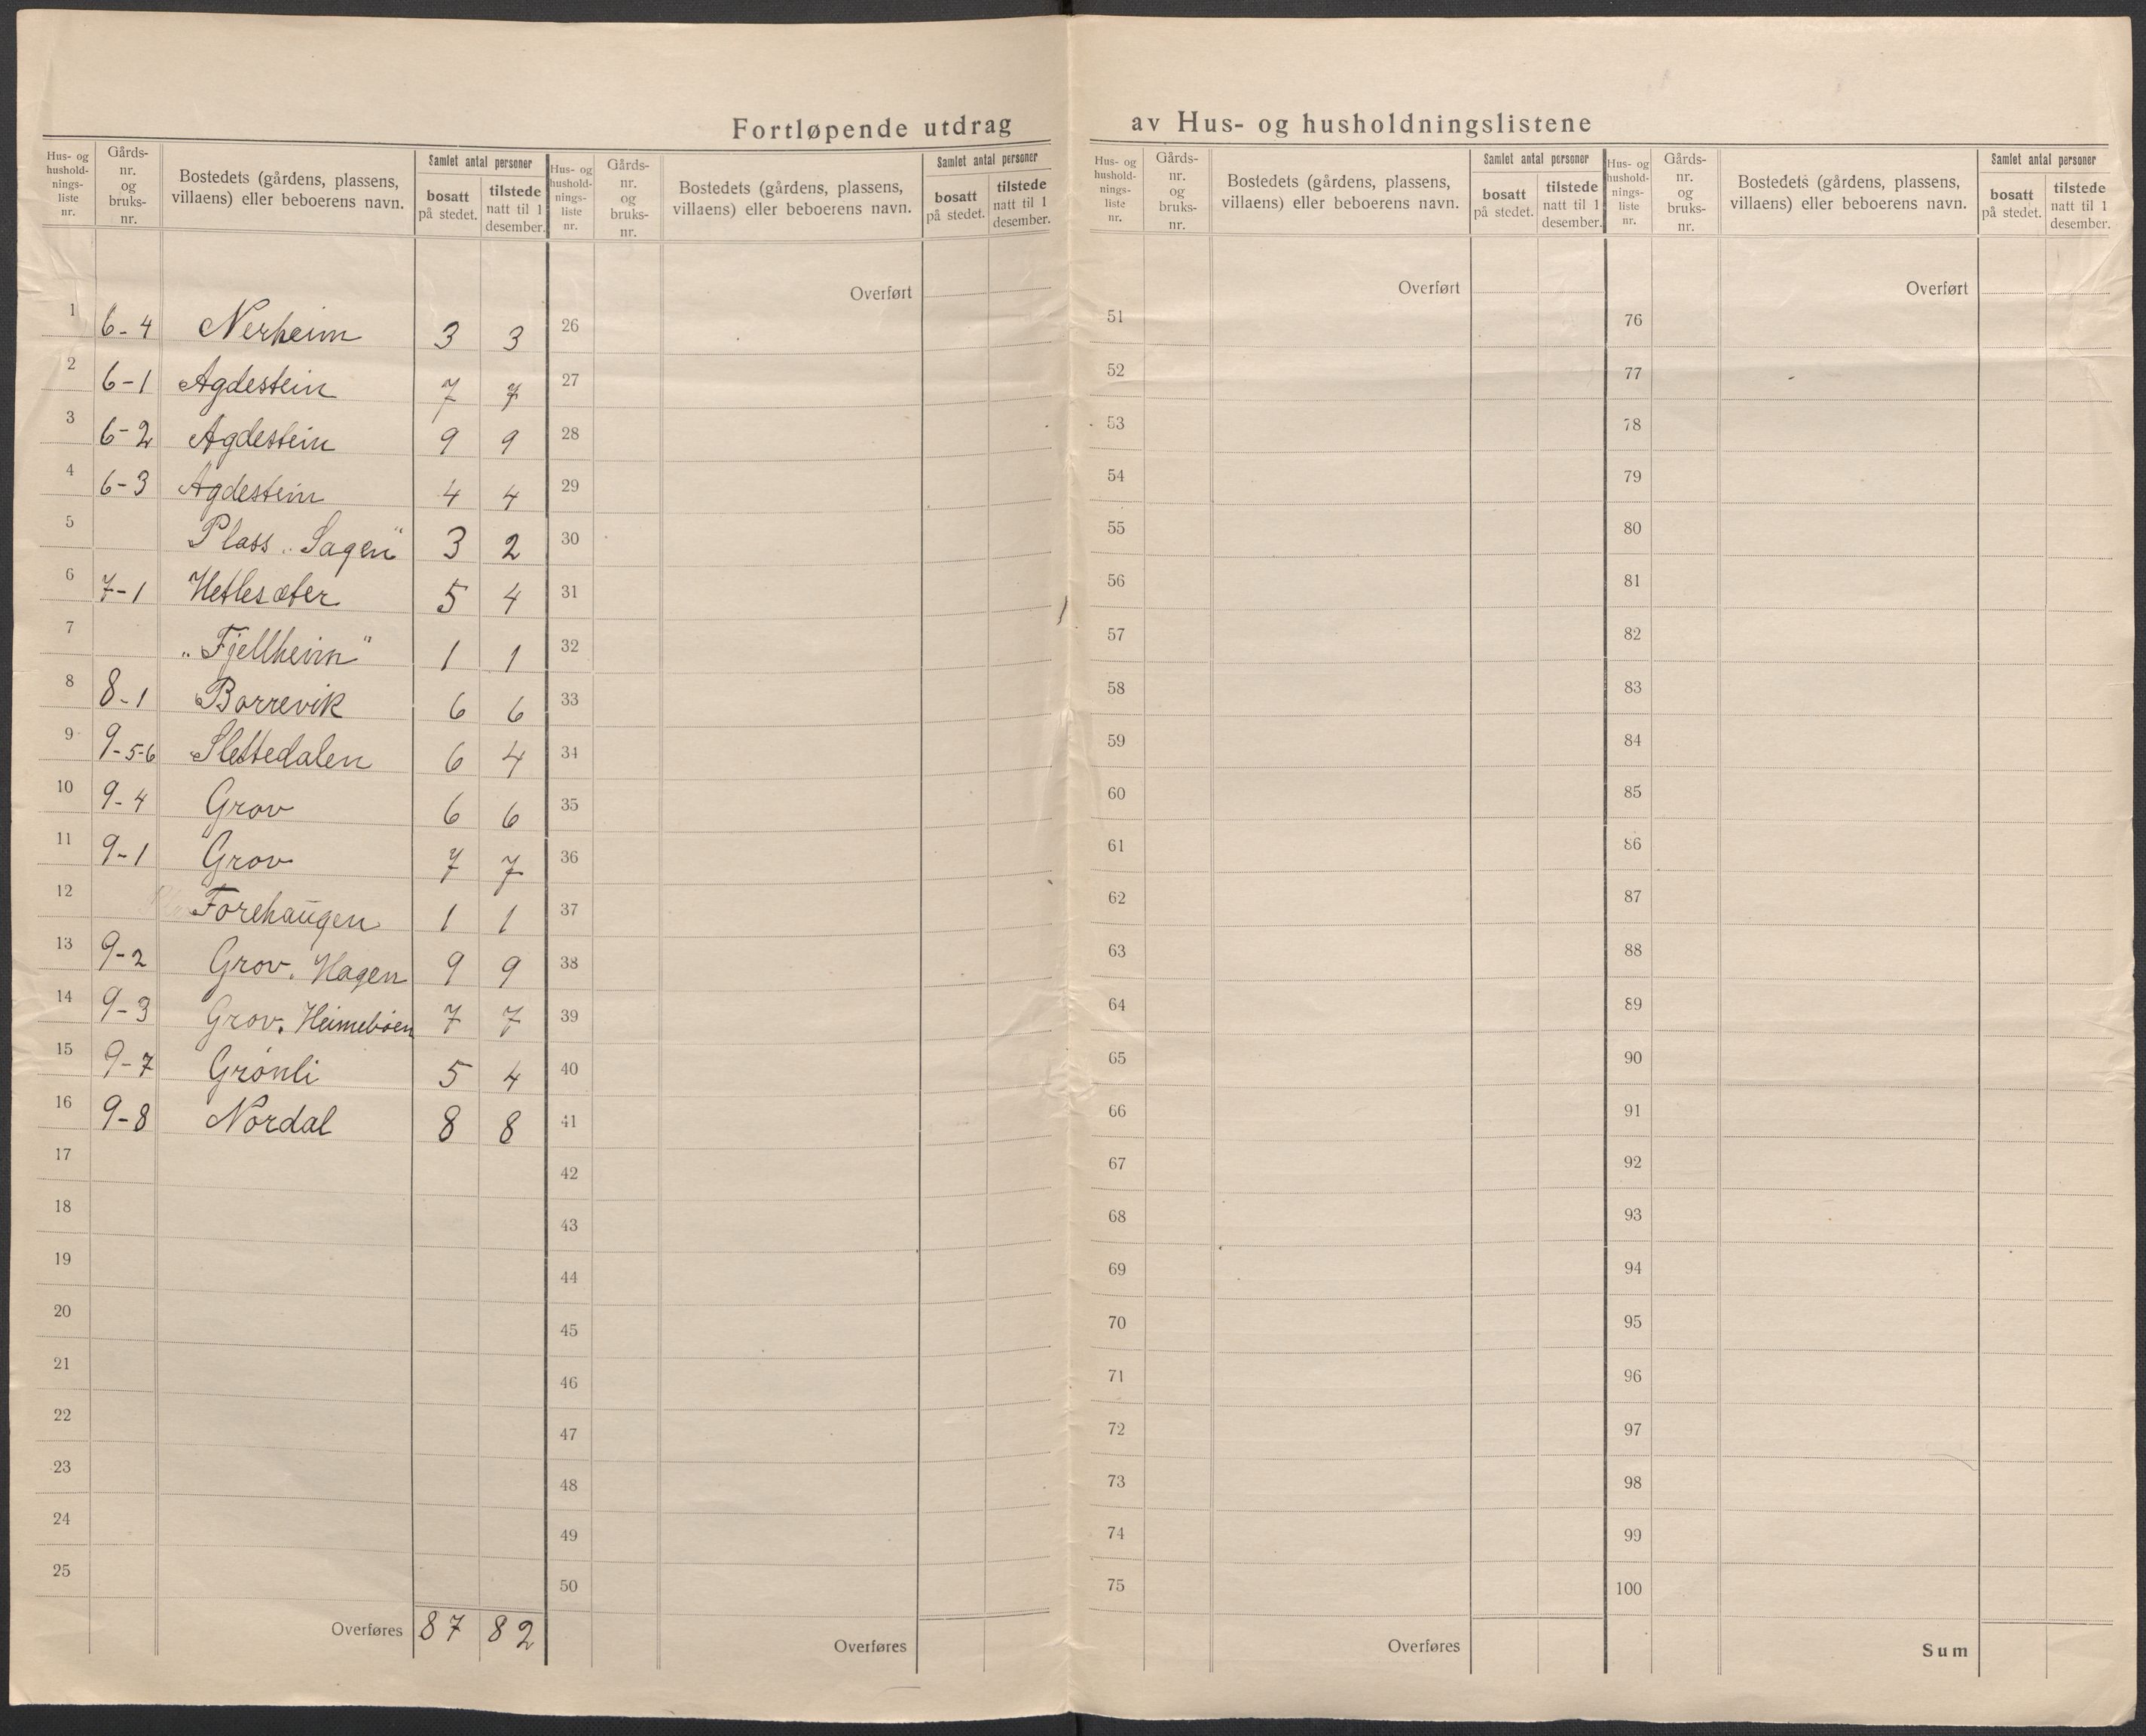 Fortløpende utdrag av Hus- og husholdningslistene
Hus- og hushold-nings-liste nr. Gårds-nr. og bruks-nr. Bostedets (gårdens, plassens, villaens) eller beboerens navn. Samlet antal personer bosatt på stedet. tilstede natt til 1 desember.
1 6-4 Nerheim 3 3
2 6-1 Agdestein 7 7
3 6-2 Agdestein 9 9
4 6-3 Agdestein 4 4
5 Plass „Sagen" 3 2
6 7-1 Hetlesæter 5 4
7 „Fjellheim" 1 1
8 8-1 Borrevik 6 6
9 9-5-6 Slettedalen 6 4
10 9-4 Grov 6 6
11 9-1 Grov 7 7
12 Forehaugen 1 1
13 9-2 Grov. Hagen 9 9
14 9-3 Grov. Heimebøen 7 7
15 9-7 Grønli 5 4
16 9-8 Nordal 8 8
17
18
19
20
21
22
23
24
25
Overføres 87 82
Hus- og hushold-nings-liste nr. Gårds-nr. og bruks-nr. Bostedets (gårdens, plassens, villaens) eller beboerens navn. Samlet antal personer bosatt på stedet. tilstede natt til 1 desember.
Overført
26
27
28
29
30
31
32
33
34
35
36
37
38
39
40
41
42
43
44
45
46
47
48
49
50
Overføres
Hus- og hushold-nings-liste nr. Gårds-nr. og bruks-nr. Bostedets (gårdens, plassens, villaens) eller beboerens navn. Samlet antal personer bosatt på stedet. tilstede natt til 1 desember.
Overført
51
52
53
54
55
56
57
58
59
60
61
62
63
64
65
66
67
68
69
70
71
72
73
74
75
Overføres
Hus- og hushold-nings-liste nr. Gårds-nr. og bruks-nr. Bostedets (gårdens, plassens, villaens) eller beboerens navn. Samlet antal personer bosatt på stedet. tilstede natt til 1 desember.
Overført
76
77
78
79
80
81
82
83
84
85
86
87
88
89
90
91
92
93
94
95
96
97
98
99
100
Sum